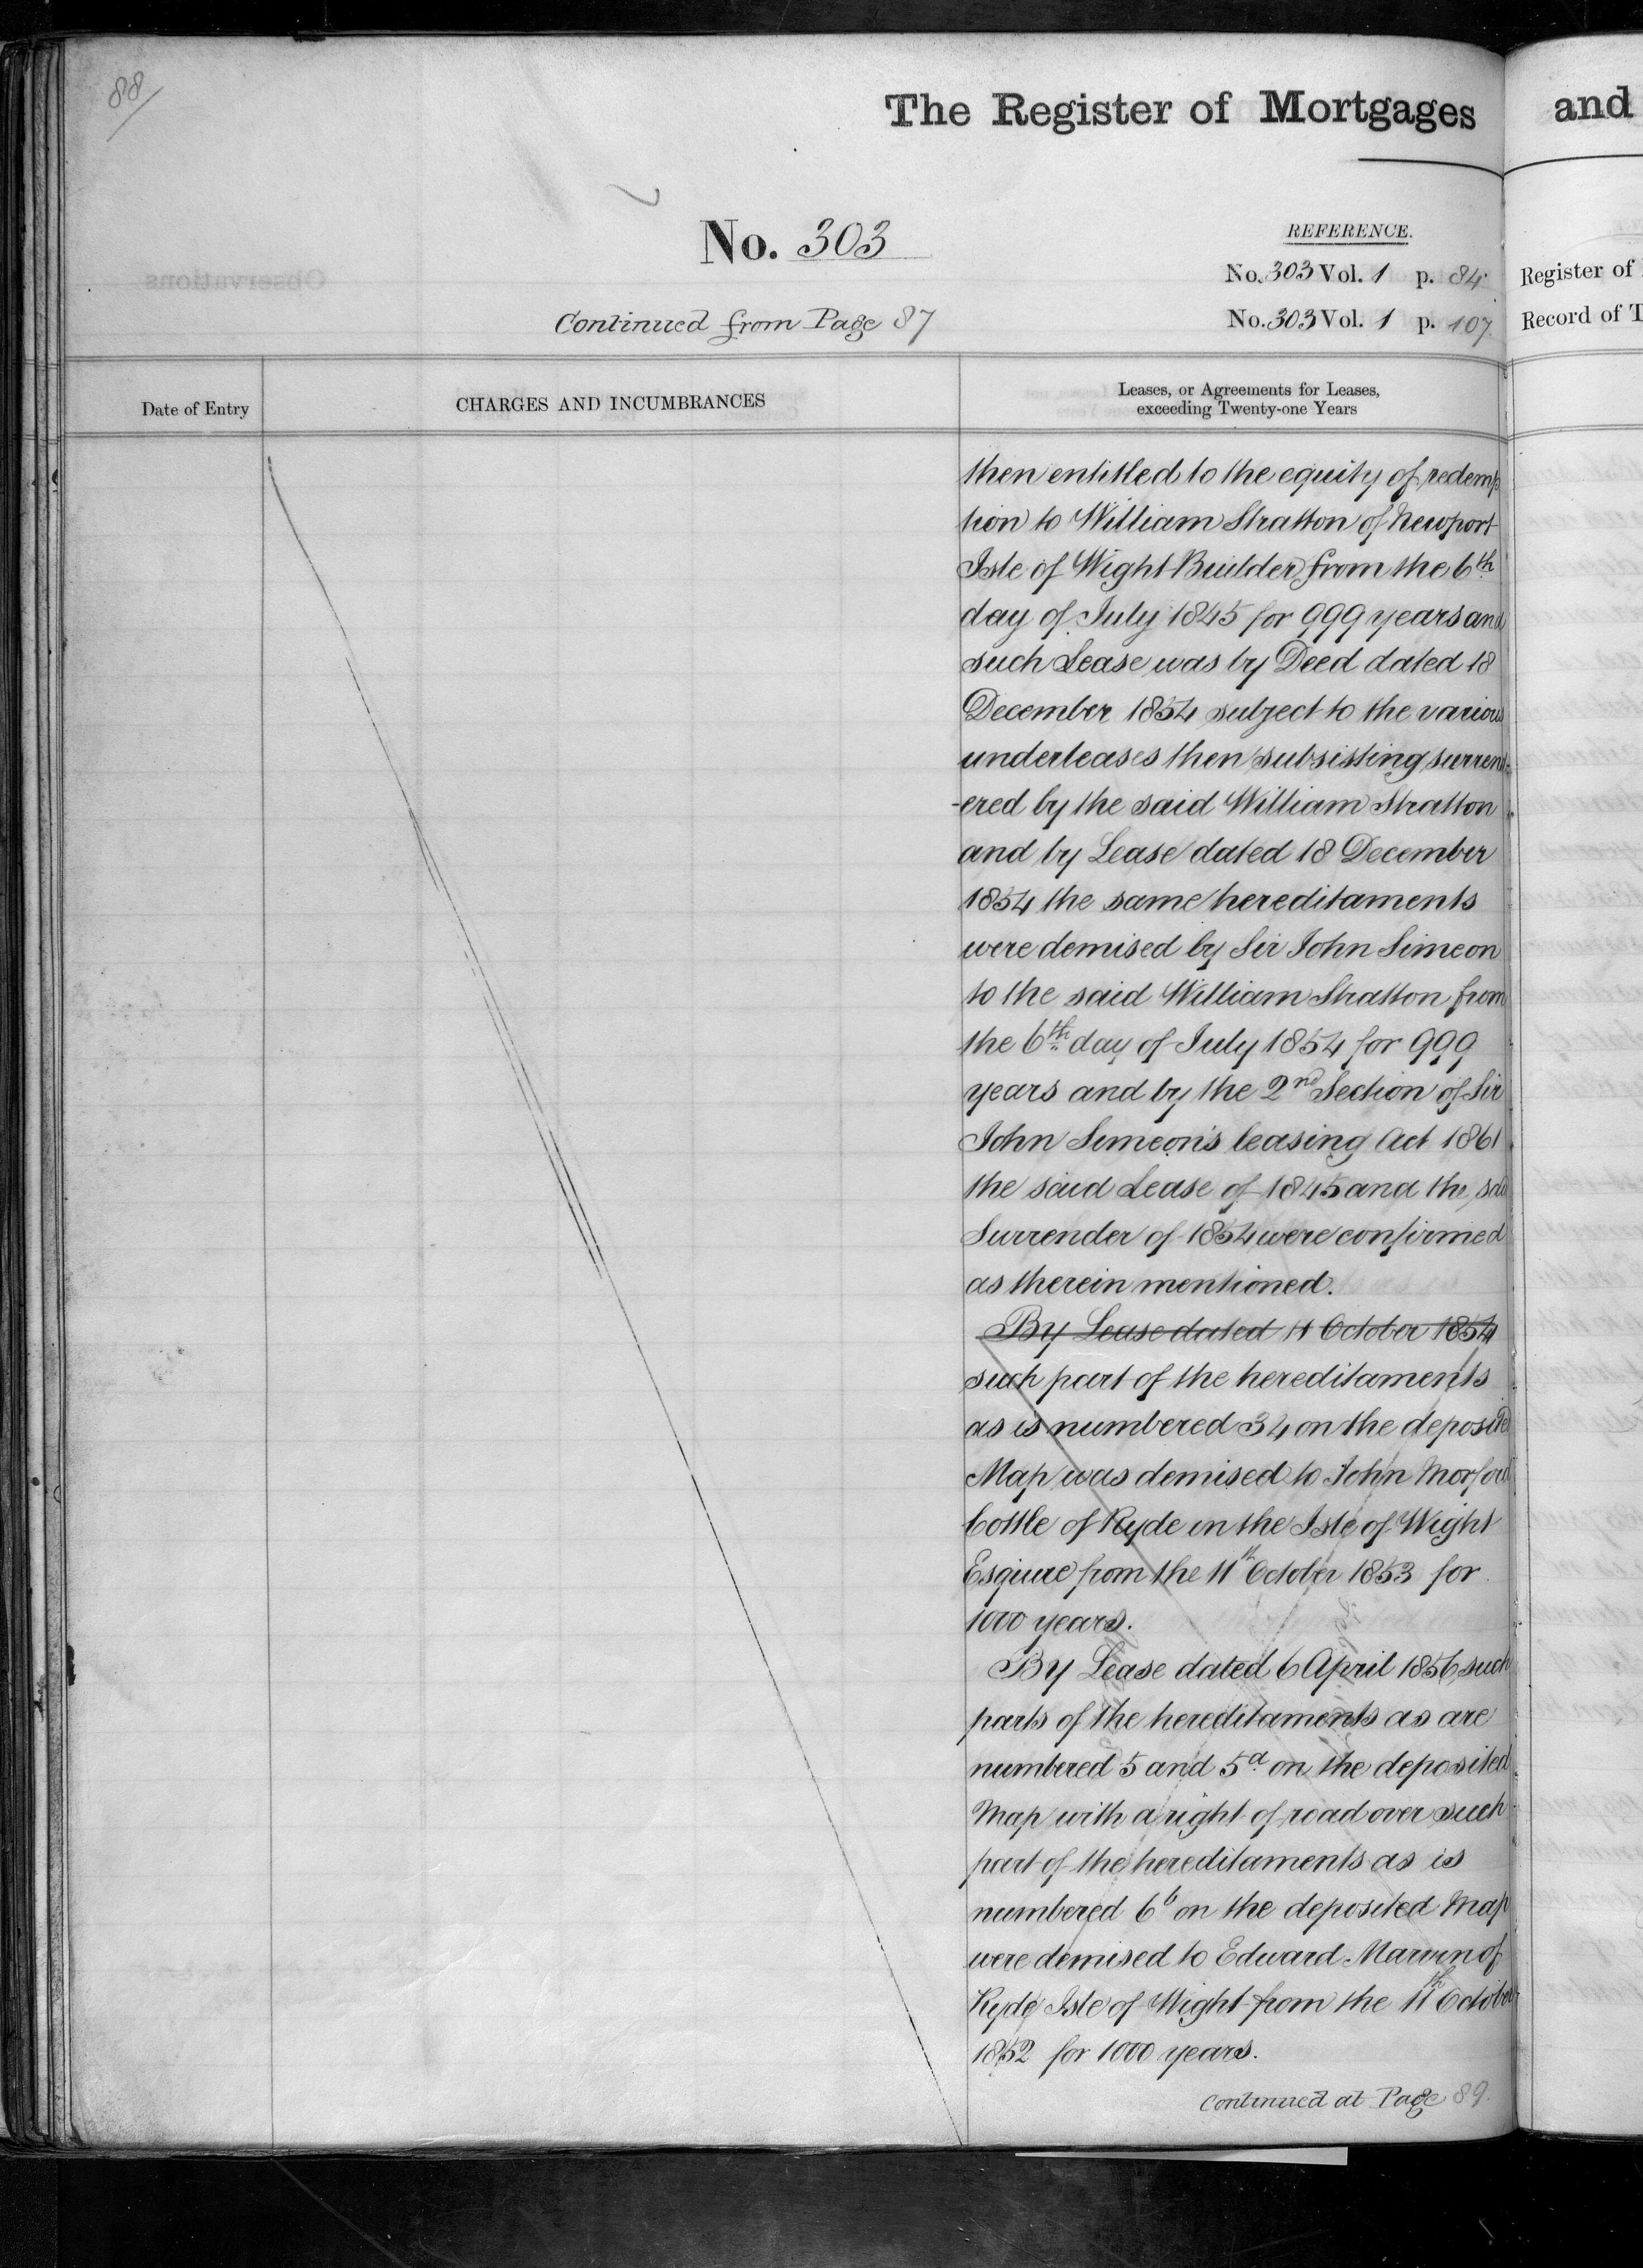 88/
The Register of Mortgages
and
No. 303
REFERENCE.
No. 303 Vol. 1 p. 84
Register of
Continued from Page 87
No. 303 Vol. 1 p. 107
Record of T
Date of Entry
CHARGES AND INCUMBRANCES
Leases, or Agreements for Leases,
exceeding Twenty-one Years
then entitled to the equity of redemp
tion to William Stratton of Newport
Isle of Wight Builder from the 6th
day of July 1845 for 999 years and
such Lease was by Deed dated 18
December 1854 subject to the various
underleases then subsisting surrend-
-ered by the said William Stratton
and by Lease dated 18 December
1854 the same hereditaments
were demised by Sir John Simeon
to the said William Stratton from
the 6th day of July 1854 for 999
years and by the 2nd Section of Sir
John Simeon's leasing Act 1861
the said Lease of 1845 and the said
Surrender of 1854 were confirmed
as therein mentioned.
By Lease dated 11 October 1854
such part of the hereditaments
as is numbered 34 on the deposited
Map was demised to John Morford
Cottle of Ryde in the Isle of Wight
Esquire from the 11th October 1853 for
1000 years.
By Lease dated 6 April 1856 such
parts of the hereditaments as are
numbered 5 and 5a on the deposited
Map with a right of road over such
part of the hereditaments as is
numbered 6b on the deposited Map
were demised to Edward Marvin of
Ryde Isle of Wight from the 11th October
1852 for 1000 years.
Continued at Page 89.